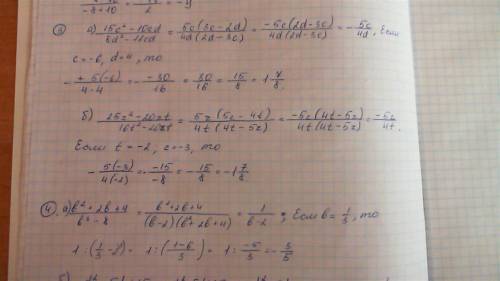 -8+10 / 2 = -4
③ а) (15c² - 10cd) / (8d² - 12cd) = 5c(3c-2d) / 4d(2d-3c) = -5c(2d-3c) / 4d(2d-3c) = - 5c / 4d, Если
c = -6, d = 4, то
- 5(-6) / 4·4 = - -30 / 16 = 30 / 16 = 15 / 8 = 1 7/8.
б) (25z² - 20zt) / (16t² - 20zt) = 5z(5z - 4t) / 4t(4t-5z) = -5z(4t-5z) / 4t(4t-5z) = -5z / 4t.
Если t = -2, z = -3, то
- 5(-3) / 4(-2) = - -15 / -8 = - 15 / 8 = -1 7/8
④ а) (b² + 2b + 4) / (b³ - 8) = (b² + 2b + 4) / (b-2)(b² + 2b + 4) = 1 / b-2; Если b = 1/3, то
1 : (1/3 - 2) = 1 : (1-6 / 3) = 1 : -5/3 = - 3/5